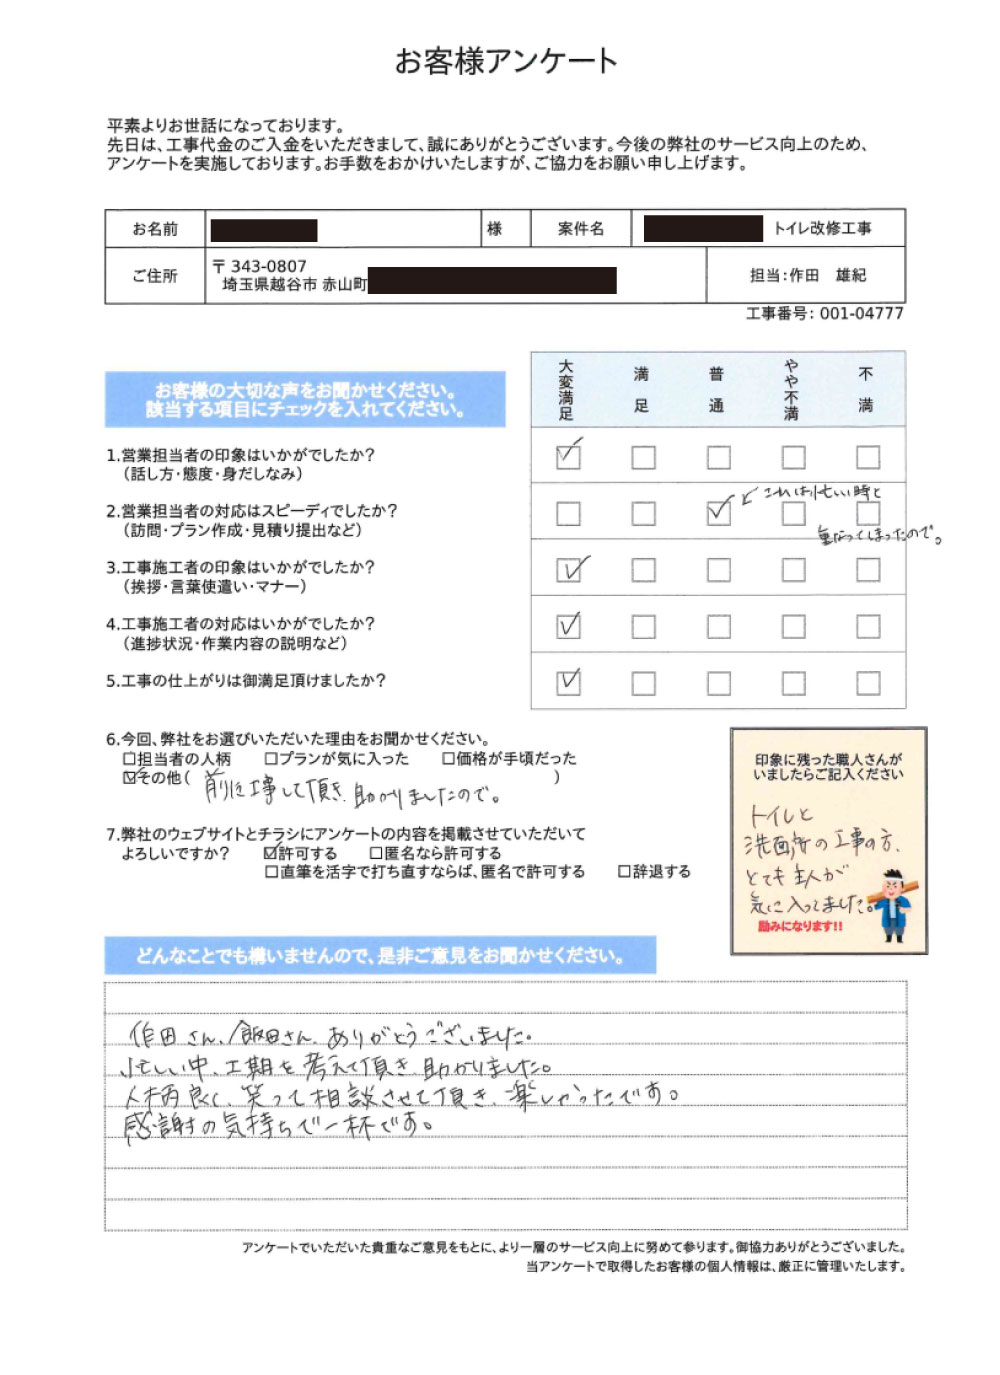 お客様アンケート
平素よりお世話になっております。
先日は、工事代金のご入金をいただきまして、誠にありがとうございます。今後の弊社のサービス向上のため、
アンケートを実施しております。お手数をおかけいたしますが、ご協力をお願い申し上げます。
お名前 様 案件名 トイレ改修工事
ご住所 〒343-0807
埼玉県越谷市 赤山町
担当：作田 雄紀
工事番号： 001-04777
お客様の大切な声をお聞かせください。
該当する項目にチェックを入れてください。
大変満足 満足 普通 やや不満 不満
1.営業担当者の印象はいかがでしたか？
（話し方・態度・身だしなみ）
2.営業担当者の対応はスピーディでしたか？
（訪問・プラン作成・見積り提出など）
これは忙しい時と
重なってしまったので。
3.工事施工者の印象はいかがでしたか？
（挨拶・言葉使遣い・マナー）
4.工事施工者の対応はいかがでしたか？
（進捗状況・作業内容の説明など）
5.工事の仕上がりは御満足頂けましたか？
6.今回、弊社をお選びいただいた理由をお聞かせください。
□担当者の人柄 □プランが気に入った □価格が手頃だった
☑その他（ 前に工事して頂き、助かりましたので。 ）
7.弊社のウェブサイトとチラシにアンケートの内容を掲載させていただいて
よろしいですか？ ☑許可する □匿名なら許可する
□直筆を活字で打ち直すならば、匿名で許可する □辞退する
印象に残った職人さんが
いましたらご記入ください
トイレと
洗面所の工事の方、
とても主人が
気に入ってました。
励みになります!!
どんなことでも構いませんので、是非ご意見をお聞かせください。
作田さん、飯田さん、ありがとうございました。
忙しい中、工期を考えて頂き、助かりました。
人柄良く、笑って相談させて頂き、楽しかったです。
感謝の気持ちで一杯です。
アンケートでいただいた貴重なご意見をもとに、より一層のサービス向上に努めて参ります。御協力ありがとうございました。
当アンケートで取得したお客様の個人情報は、厳正に管理いたします。